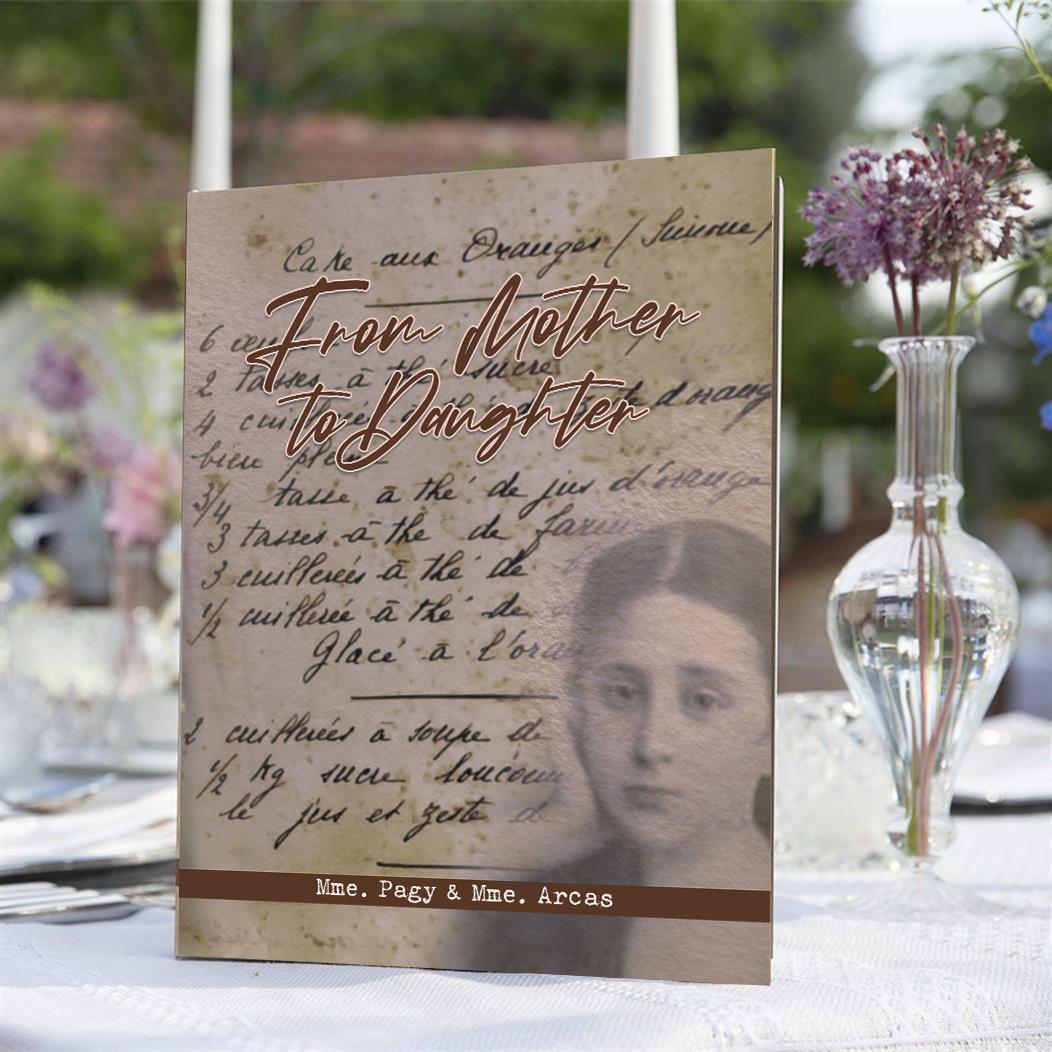 Cake aux Oranges (Simone)
From Mother
to Daughter
6 œufs
2 tasses à thé sucre
4 cuillerées à thé de zeste d'orange
bien plein
3/4 tasse à thé de jus d'orange
3 tasses à thé de farine
3 cuillerées à thé de
1/2 cuillerée à thé de
Glacé à l'ora
2 cuillerées à soupe de
1/2 Kg sucre
le jus et zeste de
Mme. Pagy & Mme. Arcas